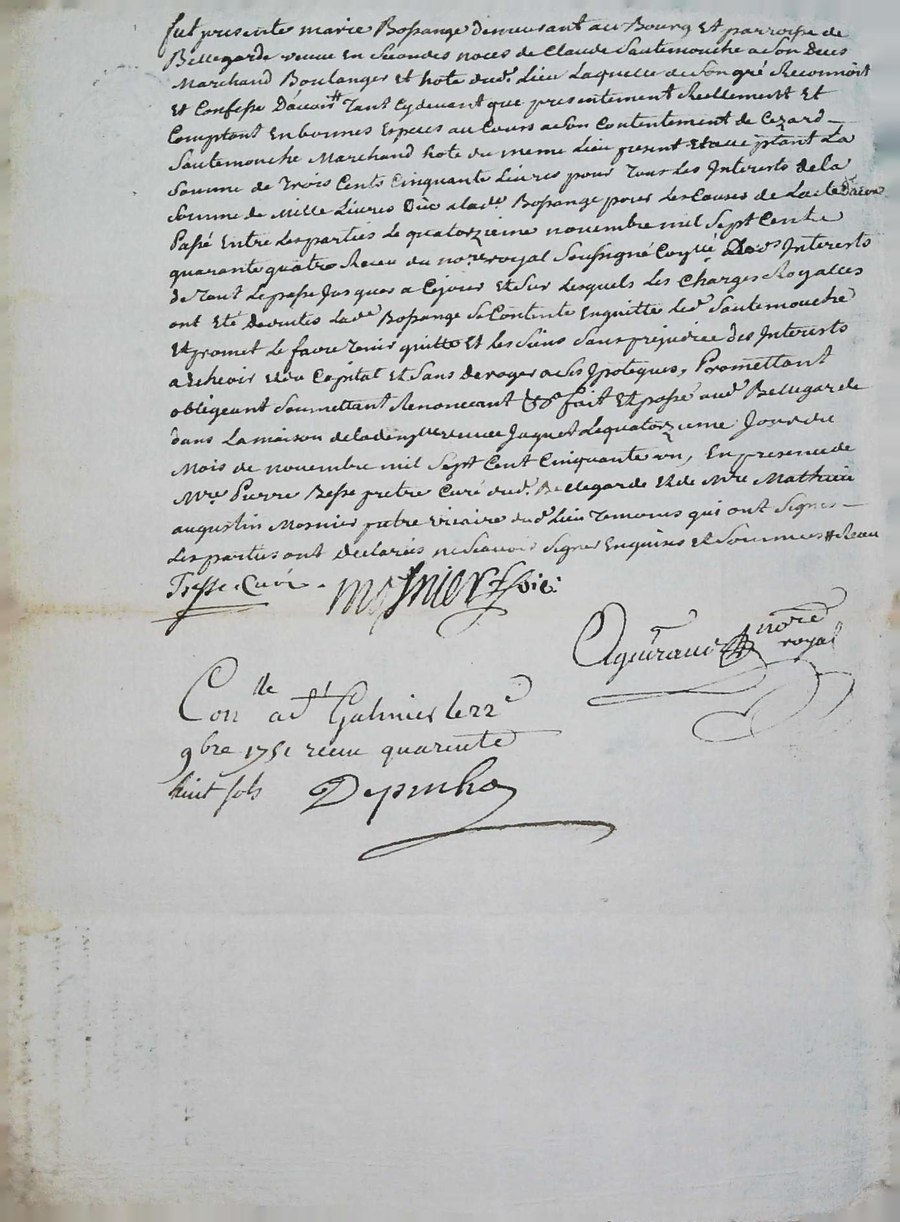 fut presente marie Bossange demeurant au Bourg Et parroisse de
Bellegarde veuve En secondes noces de Claude Sautemouche a son deces
Marchand Boulanger Et hote dud.t Lieu Laquelle de son gré Reconnoit
Et Confesse D'avoir Tant Cy devant que presentement Reellement Et
Comptant En bonnes Especes au Cours a son Contentement de Cezard
Sautemouche Marchand hote du meme Lieu present Et acceptant La
Somme de Trois Cents Cinquante Livres pour Tous Les Interests de la
Somme de Mille Livres Due a lad.e Bossange pour Les Causes de L'acte
Passé Entre Les parties Le quatorzieme novembre mil Sept Cent
quarante quatre Receu du no.re royal Soussigné Interests
de Tout Le passé Jusques a Cejour Et Sur Lesquels Les Charges Royalles
ont Eté Deduites Lad.e Bossange Se Contente En quitte Led.t Sautemouche
Et promet Le faire Tenir quitte Et les Siens Sans prejudice des Interests
a Echeoir Et du Capital Et Sans deroger a Ses Ipoteques, Promettant
obligeant Soumettant Renonceant &c.a fait Et passé aud.t Bellegarde
dans La maison de la veuve Jaquet Le quatorzieme Jour du
Mois de novembre mil Sept Cent Cinquante un, En presence de
M.re Pierre Besse pretre Curé dud.t Bellegarde Et de M.re Mathieu
augustin Mosnier pretre vicaire du d.t Lieu Temoins qui ont Signés
Les parties ont declarées ne Scavoir Signer Enquises Et Sommées Receu
Curé. Mosnier vic.
no.re
royal
Con.lle a S.t Galmier le 22.e
9bre 1751 receu quarente
huit sols